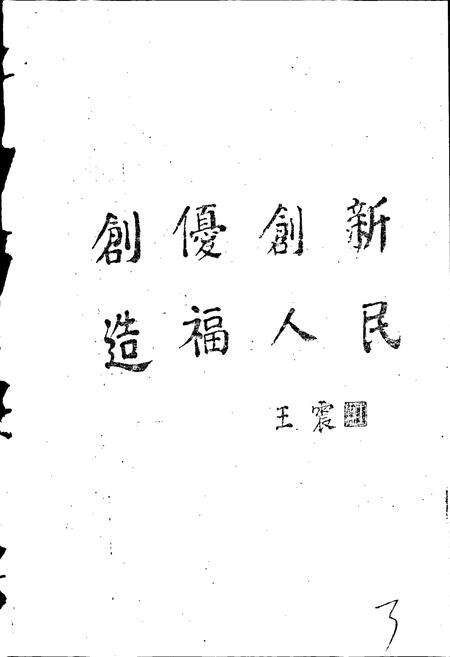 創優創新
造福人民
王震